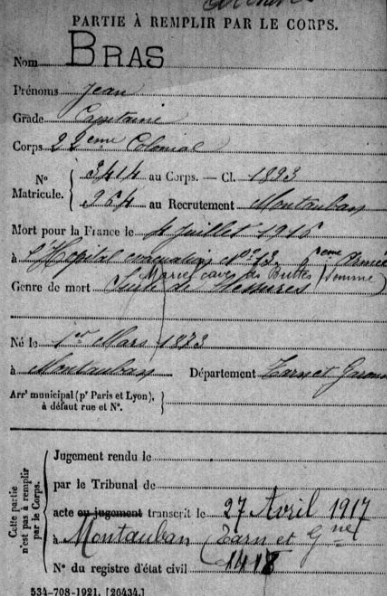 PARTIE À REMPLIR PAR LE CORPS.
Nom BRAS
Prénoms Jean
Grade Capitaine
Corps 22eme Colonial
N° Matricule. 3414 au Corps. — Cl. 1893
964 au Recrutement Montauban
Mort pour la France le 4 juillet 1916
à l'Hopital evacuation N° 13
Marcelcave les Buttes (Somme)
Genre de mort Suite de blessures
Né le 1er Mars 1873
à Montauban Département Tarn et Garonne
Arrt municipal (pr Paris et Lyon), à défaut rue et N°.
Cette partie n'est pas à remplir par le Corps.
Jugement rendu le
par le Tribunal de
acte ou jugement transcrit le 27 Avril 1917
à Montauban (Tarn et Gne
N° du registre d'état civil 1418
534-708-1921. [26434.]